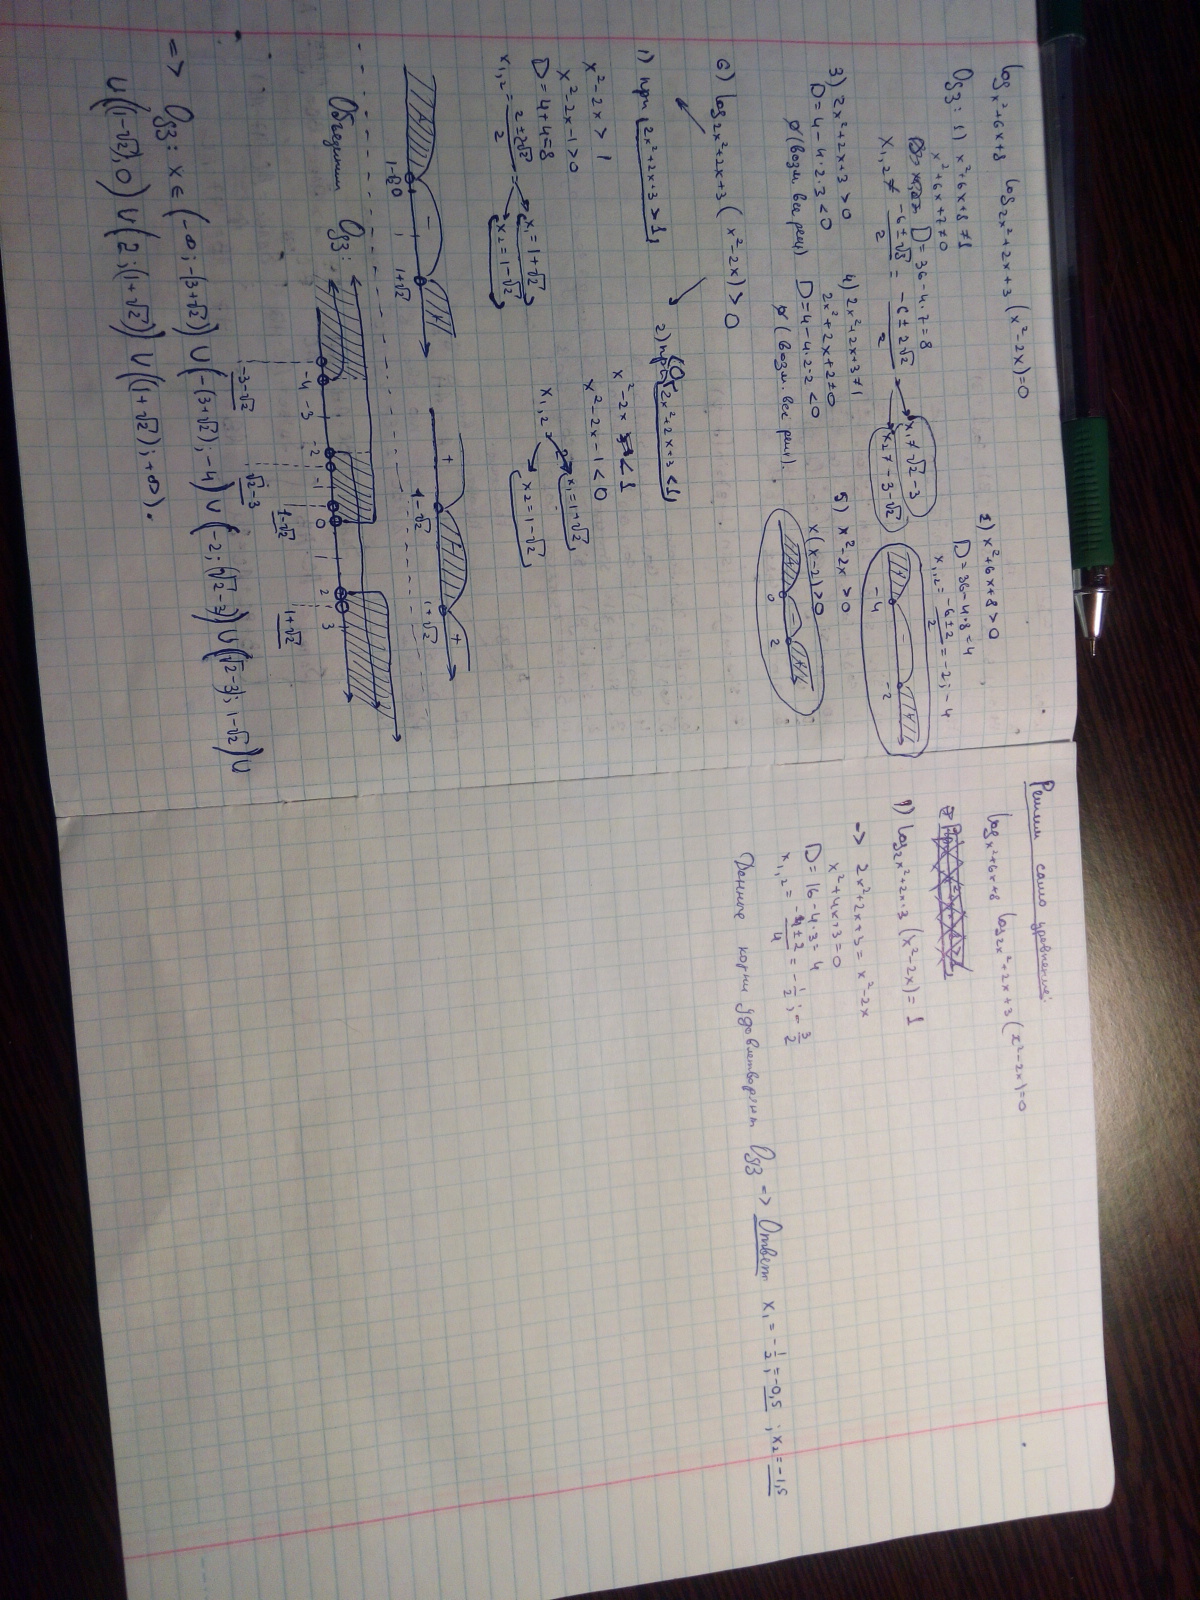 log x²+6x+8 log 2x²+2x+3 (x²-2x)=0
Одз: 1) x²+6x+8≠1
x²+6x+7≠0
D=36-4·7=8
x₁,₂ ≠ (-6±√8)/2 = (-6±2√2)/2
x₁≠√2-3
x₂≠-3-√2
2) x²+6x+8>0
D=36-4·8=4
x₁,₂=(-6±2)/2=-2;-4
-4 - -2
3) 2x²+2x+3>0
D=4-4·2·3<0
∅ (возм. все реш)
4) 2x²+2x+3≠1
2x²+2x+2≠0
D=4-4·2·2<0
∅ (возм. все реш).
5) x²-2x>0
x(x-2)>0
0 - 2
6) log 2x²+2x+3 (x²-2x)>0
1) при 2x²+2x+3>1
x²-2x>1
x²-2x-1>0
D=4+4=8
x₁,₂=(2±2√2)/2=
x₁=1+√2
x₂=1-√2
1-√2 0 1 1+√2
2) при 2x²+2x+3<1
x²-2x<1
x²-2x-1<0
x₁,₂
x₁=1+√2
x₂=1-√2
+ 1-√2 1+√2 +
Объединим Одз:
-4 -3 -2 -1 0 1 2 3
-3-√2 √2-3 1-√2 1+√2
=> Одз: x∈(-∞;-(3+√2))∪(-(3+√2);-4)∪(-2;(√2-3))∪(√2-3);1-√2)∪
∪((1-√2);0)∪(2;(1+√2))∪((1+√2);+∞).
Решим само уравнение:
log x²+6x+8 log 2x²+2x+3 (x²-2x)=0
1) log 2x²+2x+3 (x²-2x)=1
=> 2x²+2x+3=x²-2x
x²+4x+3=0
D=16-4·3=4
x₁,₂=(-4±2)/4=-1/2;-3/2
Данные корни удовлетворяют Одз => Ответ: x₁=-1/2=-0,5; x₂=-1,5